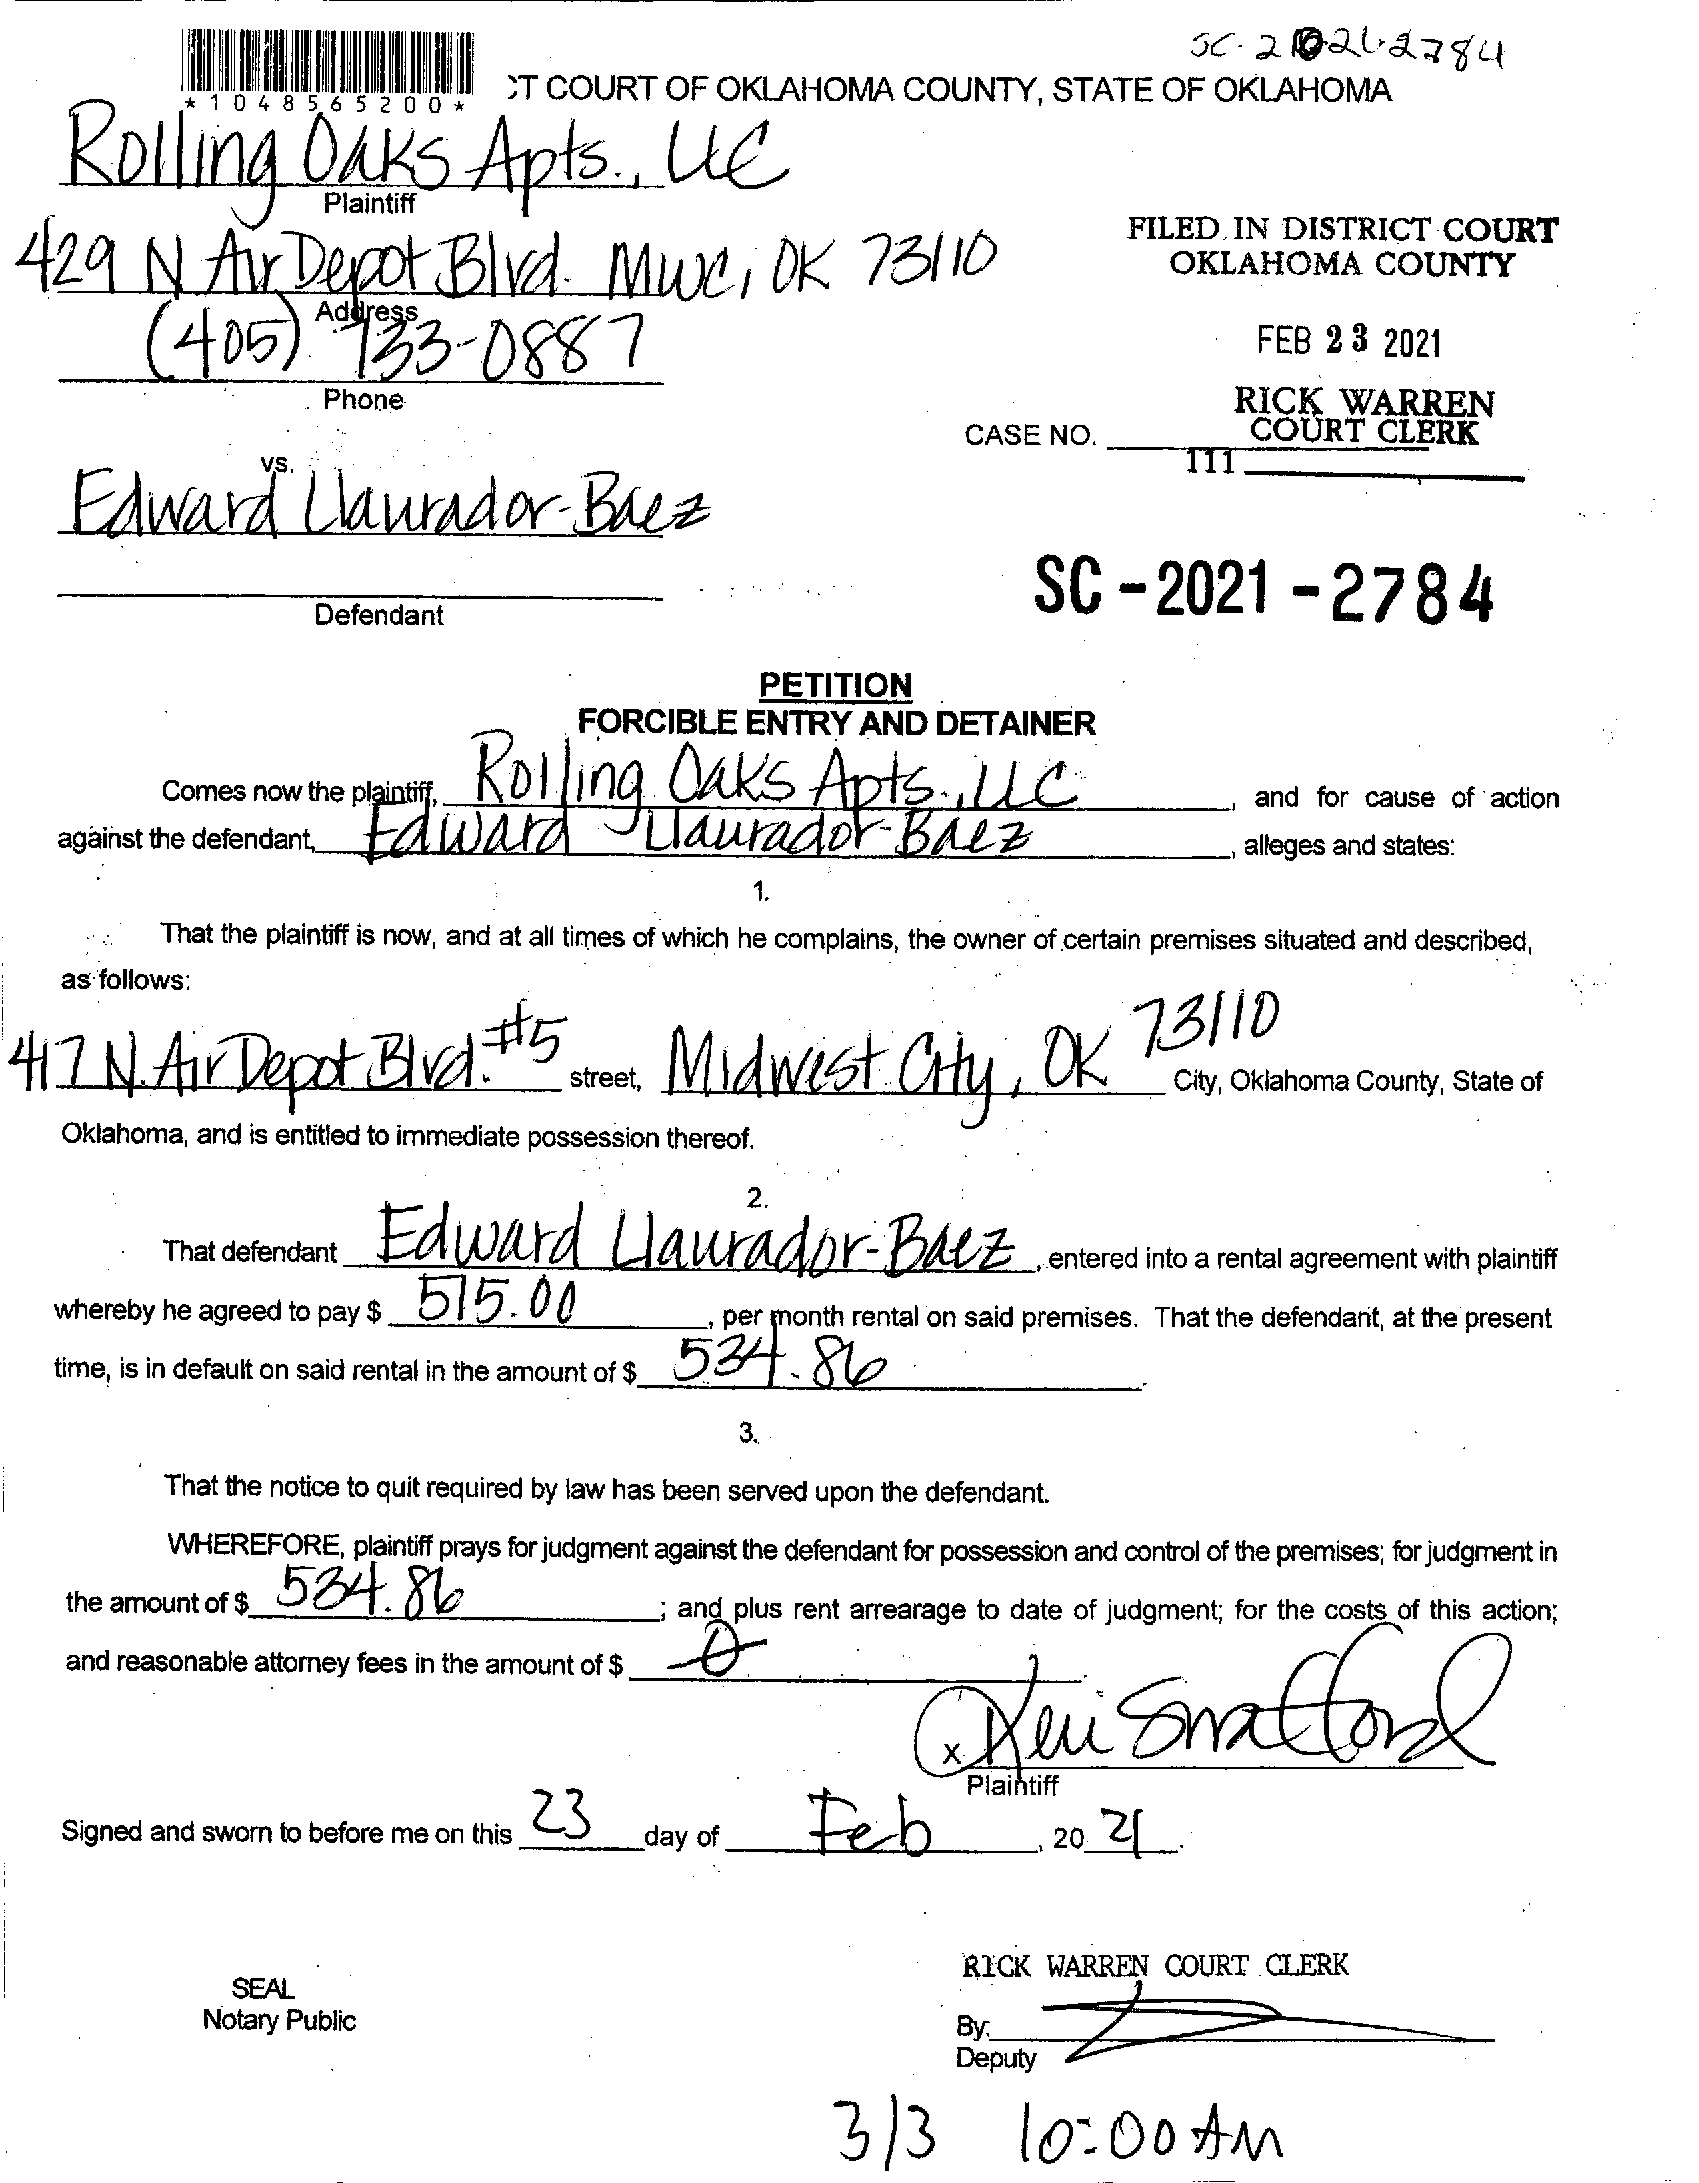 SC-2021-2784
*1048565200*
CT COURT OF OKLAHOMA COUNTY, STATE OF OKLAHOMA
Rolling Oaks Apts., LLC
Plaintiff
429 N Air Depot Blvd. MWC, OK 73110
Address
(405) 733-0887
Phone
FILED IN DISTRICT COURT
OKLAHOMA COUNTY
FEB 23 2021
RICK WARREN
COURT CLERK
CASE NO.
111
vs.
Edward Llaurador-Baez
Defendant
SC-2021-2784
PETITION
FORCIBLE ENTRY AND DETAINER
Comes now the plaintiff, Rolling Oaks Apts., LLC, and for cause of action
against the defendant, Edward Llaurador-Baez, alleges and states:
1.
That the plaintiff is now, and at all times of which he complains, the owner of certain premises situated and described,
as follows:
417 N. Air Depot Blvd. #5 street, Midwest City, OK 73110 City, Oklahoma County, State of
Oklahoma, and is entitled to immediate possession thereof.
2.
That defendant Edward Llaurador-Baez, entered into a rental agreement with plaintiff
whereby he agreed to pay $ 575.00, per month rental on said premises. That the defendant, at the present
time, is in default on said rental in the amount of $ 534.86.
3.
That the notice to quit required by law has been served upon the defendant.
WHEREFORE, plaintiff prays for judgment against the defendant for possession and control of the premises; for judgment in
the amount of $ 534.86; and plus rent arrearage to date of judgment; for the costs of this action;
and reasonable attorney fees in the amount of $ 0
x
Plaintiff
Signed and sworn to before me on this 23 day of Feb, 20 21.
SEAL
Notary Public
RICK WARREN COURT CLERK
By:
Deputy
3/3 10:00 AM